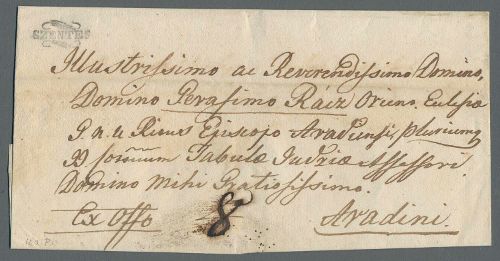 SZENTES
Illustrissimo ac Reverendissimo Domino,
Domino Gerasimo Rácz Orien. Eclesiæ
G. n. u. Ritus Episcopo Aradiensi, plurium
Tabulæ Judriæ Assessori
Domino Mihi Gratiosissimo.
Ex Offo 8 Aradini.